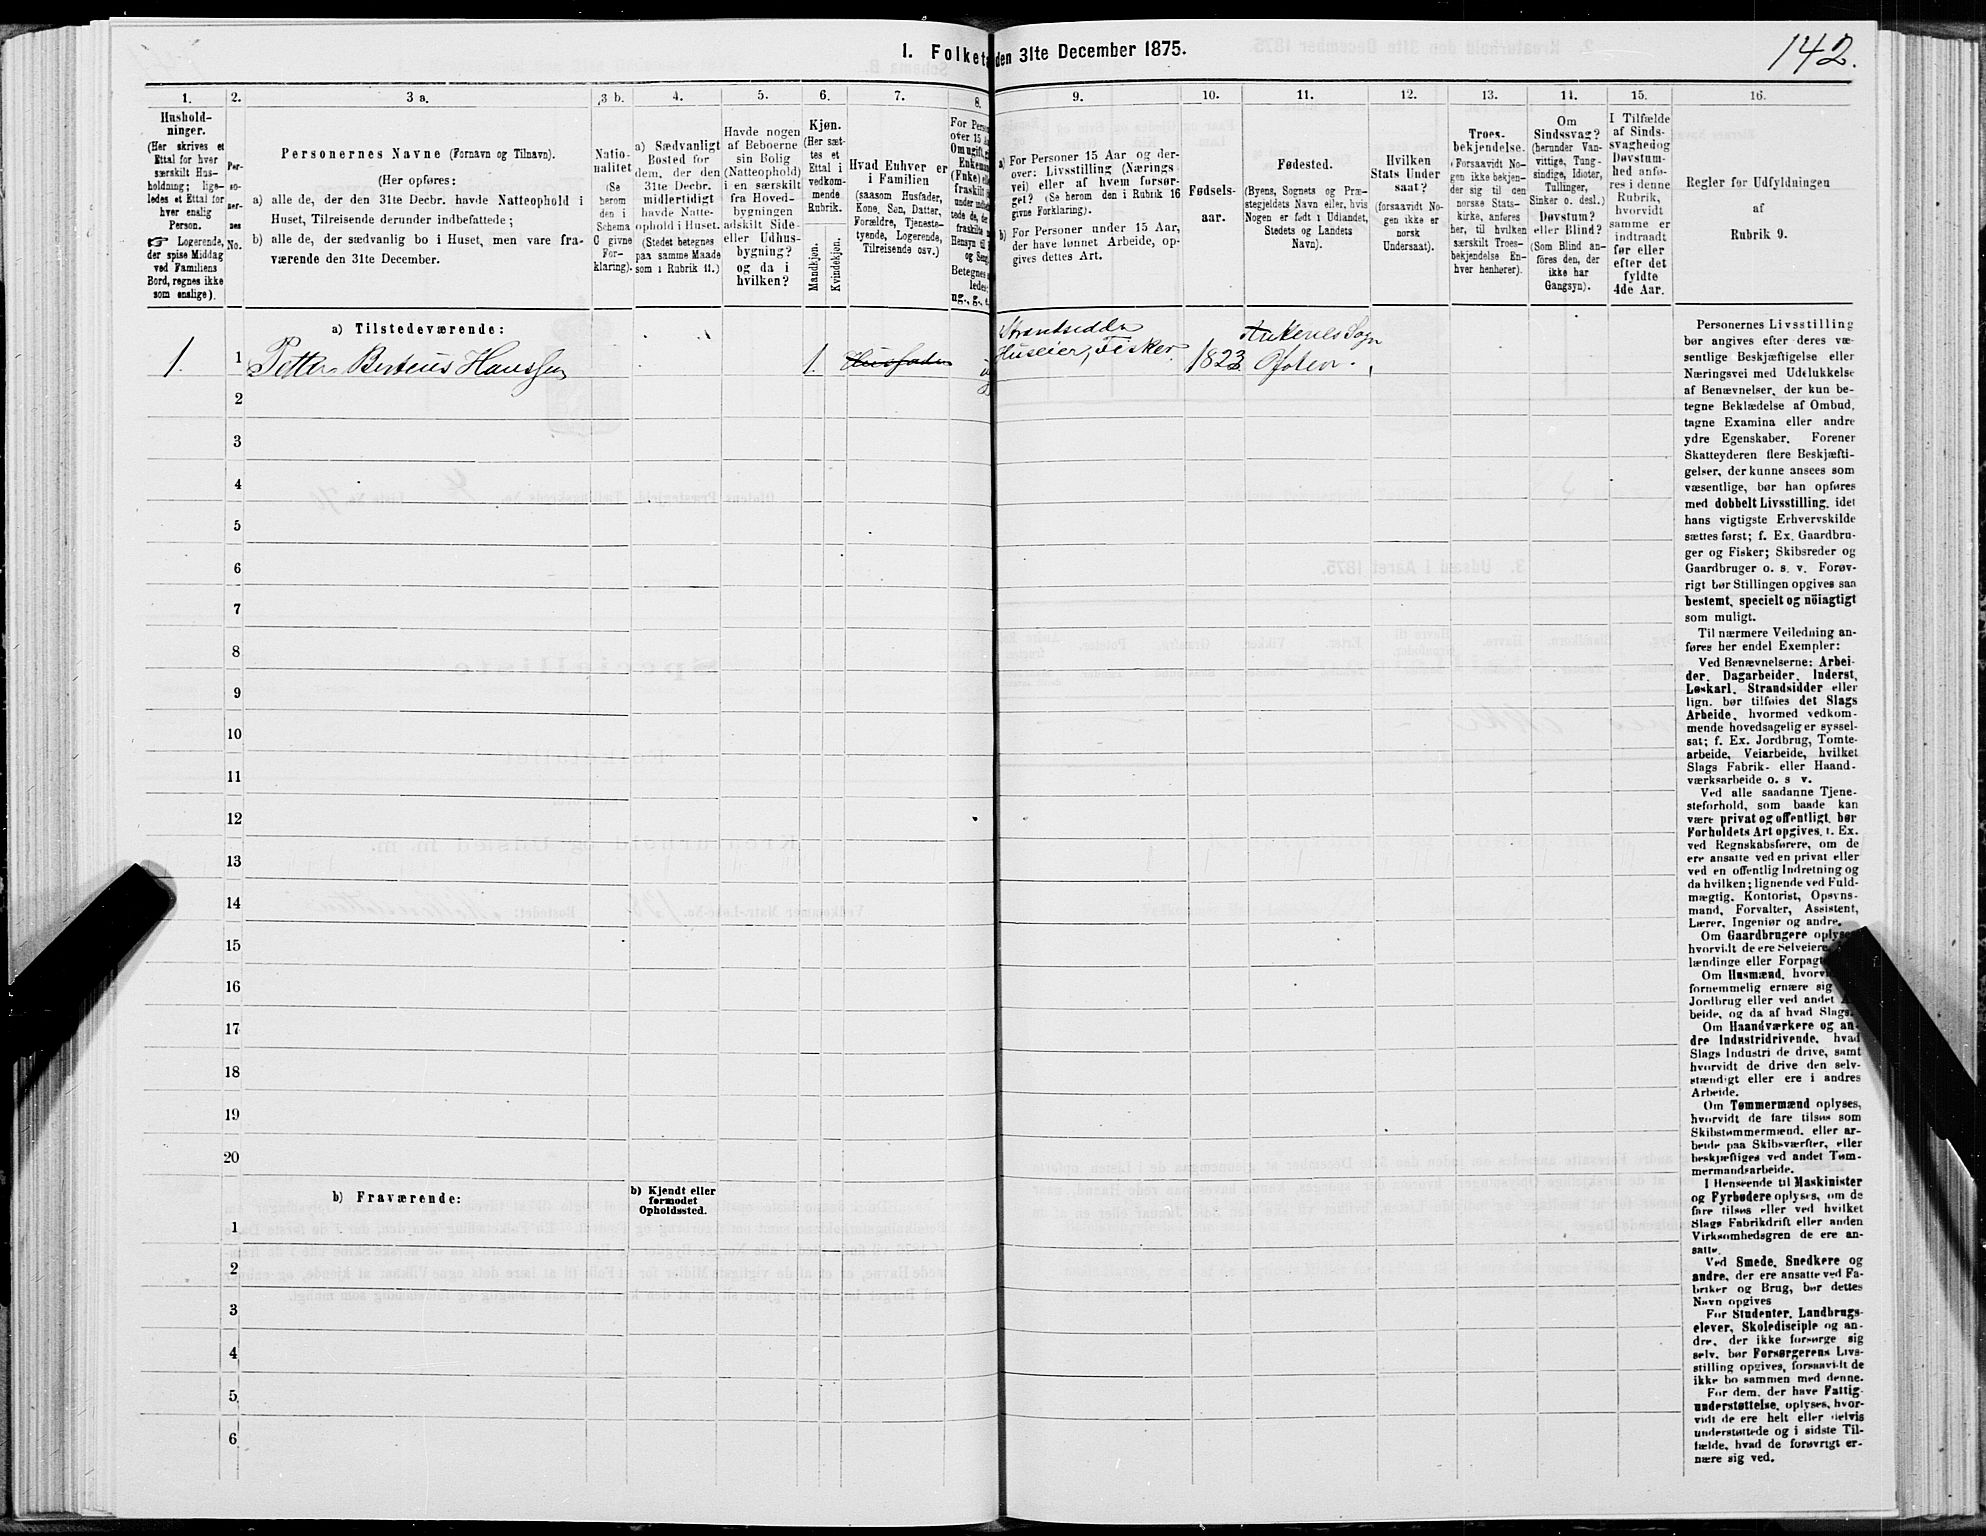 1. Folketæ
den 31te December 1875.
142.
1.
Hushold-
ninger.
(Her skrives et
Ettal for hver
særskilt Hus-
holdning; lige-
ledes et Ettal for
hver enslig
Person.
☞ Logerende,
der spise Middag
ved Familiens
Bord, regnes ikke
som enslige).
2.
Per-
so-
ner-
nes
No.
3 a.
Personernes Navne (Fornavn og Tilnavn).
(Her opføres:
a) alle de, der den 31te Decbr. havde Natteophold i
Huset, Tilreisende derunder indbefattede;
b) alle de, der sædvanlig bo i Huset, men vare fra-
værende den 31te December.
3 b.
Natio-
nalitet
(Se
herom
den i
Schema
C givne
For-
klaring).
4.
a) Sædvanligt
Bosted for
dem, der den
31te Decbr.
midlertidigt
havde Natte-
ophold i Huset.
(Stedet betegnes
paa samme Maade
som i Rubrik 11.)
5.
Havde nogen
af Beboerne
sin Bolig
(Natteophold)
i en særskilt
fra Hoved-
bygningen
adskilt Side-
eller Udhus-
bygning?
og da i
hvilken?
6.
Kjøn.
(Her sæt-
tes et
Ettal i
vedkom-
mende
Rubrik.
Mandkjøn.
Kvindekjøn.
7.
Hvad Enhver er
i Familien
(saasom Husfader,
Kone, Søn, Datter,
Forældre, Tjeneste-
tyende, Logerende,
Tilreisende osv.)
8.
For Perso
over 15 Aa
Om ugift, g
Enkeman
(Enke) ell
fraskilt
9.
a) For Personer 15 Aar og der-
over: Livsstilling (Nærings-
vei) eller af hvem forsør-
get? (Se herom den i Rubrik 16
givne Forklaring).
b) For Personer under 15 Aar,
der have lønnet Arbeide, op-
gives dettes Art.
10.
Fødsels-
aar.
11.
Fødested.
(Byens, Sognets og Præ-
stegjeldets Navn eller, hvis
Nogen er født i Udlandet,
Stedets og Landets
Navn).
12.
Hvilken
Stats Under
saat?
(forsaavidt No-
gen ikke er
norsk
Undersaat).
13.
Troes-
bekjendelse.
(Forsaavidt No-
gen ikke bekjen-
der sig til den
norske Stats-
kirke, anføres
her, til hvilken
særskilt Troes-
bekjendelse En-
hver henhører).
14.
Om
Sindssvag?
(herunder Van-
vittige, Tung-
sindige, Idioter,
Tullinger,
Sinker o. desl.)
Døvstum?
eller Blind?
(Som Blind an-
føres den, der
ikke har
Gangsyn).
15.
I Tilfælde
af Sinds-
svaghed og
Døvstum-
hed anfø-
res i denne
Rubrik,
hvorvidt
samme er
indtraadt
før eller
efter det
fyldte
4de Aar.
16.
Regler for Udfyldningen
af
Rubrik 9.
a) Tilstedeværende:
1. 1 Petter Berteus Hanssen 1. Husfader
Strandsidder
Huseier, Fisker 1823
Ankenes Sogn
Ofoten.
2
3
4
5
6
7
8
9
10
11
12
13
14
15
16
17
18
19
20
b) Fraværende:
b) Kjendt eller
formodet
Opholdssted.
1
2
3
4
5
6
Personernes Livsstilling
bør angives efter deres væ-
sentlige Beskjæftigelse eller
Næringsvei med Udelukkelse
af Benævnelser, der kun be-
tegne Beklædelse af Ombud,
tagne Examina eller andre
ydre Egenskaber. Forener
Skatteyderen flere Beskjæfti-
gelser, der kunne ansees som
væsentlige, bør han opføres
med dobbelt Livsstilling, idet
hans vigtigste Erhvervskilde
sættes først; f. Ex. Gaardbru-
ger og Fisker; Skibsreder og
Gaardbruger o. s. v. Forøv-
rigt bør Stillingen opgives saa
bestemt, specielt og nöiagtigt
som muligt.
Til nærmere Veiledning an-
føres her endel Exempler:
Ved Benævnelserne: Arbei-
der, Dagarbeider, Inderst,
Løskarl, Strandsidder eller
lign. bør tilføies det Slags
Arbeide, hvormed vedkom-
mende hovedsagelig er syssel-
sat; f. Ex. Jordbrug, Tomte-
arbeide, Veiarbeide, hvilket
Slags Fabrik- eller Haand-
værksarbeide o. s v.
Ved alle saadanne Tjene-
steforhold, som baade kan
være privat og offentligt, bør
Forholdets Art opgives, t. Ex.
ved Regnskabsførere, om de
ere ansatte ved en privat eller
ved en offentlig Indretning og
da hvilken; lignende ved Fuld-
mægtig, Kontorist, Opsyns-
mand, Forvalter, Assistent,
Lærer, Ingeniør og andre.
Om Gaardbrugere oplyses,
hvorvidt de ere Selveiere,
lændinge eller Forpagt
Om Husmænd, hvorvi
fornemmelig ernære sig
Jordbrug eller ved andet A
beide, og da af hvad Slags.
Om Haandværkere og an-
dre Industridrivende, hvad
Slags Industri de drive, samt
hvorvidt de drive den selv-
stændigt eller ere i andres
Arbeide.
Om Tømmermænd oplyses,
hvorvidt de fare tilsøs som
Skibstømmermænd, eller ar-
beide paa Skibsværfter, eller
beskjæftiges ved andet Tøm-
mermandsarbeide.
I Henseende til Maskinister
og Fyrbødere oplyses, om de
fare tilsøs eller ved hvilket
Slags Fabrikdrift eller anden
Virksomhedsgren de ere an-
satte.
Ved Smede, Snedkere og
andre, der ere ansatte ved Fa-
briker og Brug, bør dettes
Navn opgives
For Studenter, Landbrugs-
elever, Skoledisciple og an-
dre, der ikke forsørge sig
selv, bør Forsørgerens Livs-
stilling opgives, forsaavidt de
ikke bo sammen med denne.
For dem, der have Fattig-
understøttelse, oplyses, hvor-
vidt de ere helt eller delvis
understøttede og i sidste Til-
fælde, hvad de forøvrigt er-
nære sig ved.